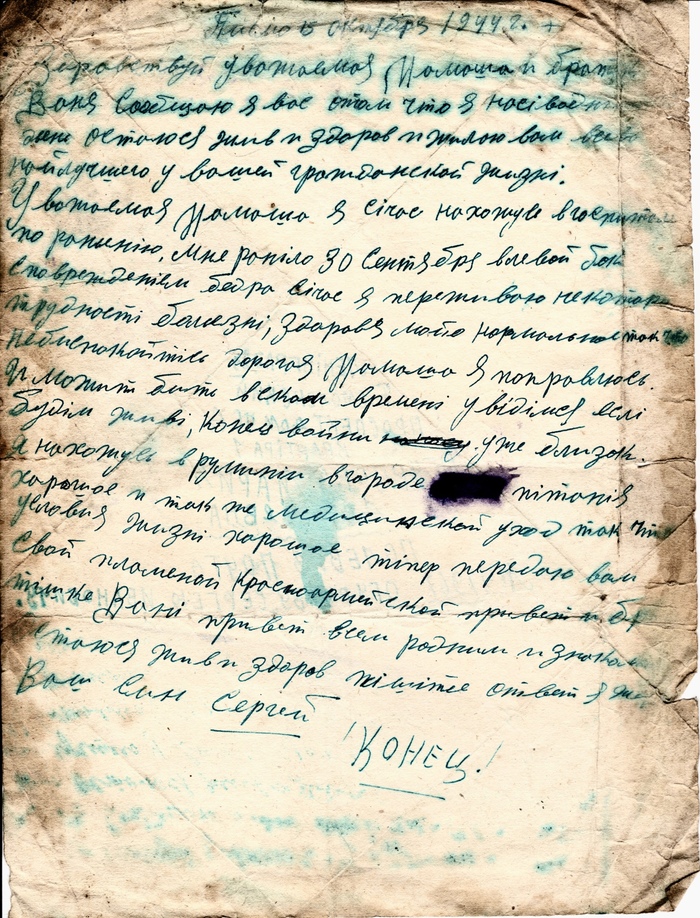 Писмо 5 октября 1944 г. +
Здравствуй уважаемая Мамаша и брат
Ваня Сообщаю я вас отом что я насівоdни
жив и здоров и жилаю вам всево
найлучшего у вашей гражданской жизні.
Уважаемая Мамаша я січас нахожусь вгоспитале
по раненію, Мне раніло 30 Сентября влевой бок
споврежденіем бедра січас я переживаю некотора
трудності болезні, Здоровя мойо нормально так что
небиспокойтісь дорогая Мамаша я поправлюсь.
И можит бить вском времені увідімся еслі
будім живі, Конец войни уже близок.
Я нахожусь врумініи вгороде пітанія
хорошое и так же медицинской уход так что
условия жизні хорошое тіпер передаю вам
свой пламеной Красноармейской привет и бр
тішке Вані привет всем родним и знаком
стаюся жив и здоров пішітіе ответ я жд
Ваш Син Сергей
! КОНЕЦ!